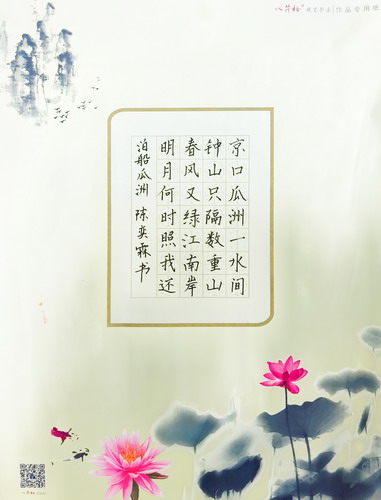 京口瓜洲一水间
钟山只隔数重山
春风又绿江南岸
明月何时照我还
泊船瓜洲 陈奕霖书
作品专用纸